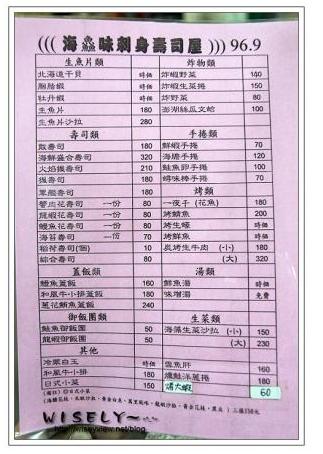 (((海鱻味刺身壽司屋))) 96.9
生魚片類
北海道干貝 時價
胭脂蝦 時價
牡丹蝦 時價
生魚片
生魚片沙拉 280
壽司類
散壽司 180
海鮮盛合壽司 320
火焰握壽司 210
握壽司 180
軍艦壽司 180
蟹肉花壽司 一份 80
龍蝦花壽司 一份 80
鰻魚花壽司 一份 80
海苔壽司 一份 60
稻荷壽司(個) 10
綜合壽司 80
蓋飯類
鰻魚蓋飯 160
和風牛小排蓋飯 180
蔥花鮪魚蓋飯 240
御飯團類
鮭魚御飯團 50
龍蝦御飯團 50
其他
冷泉白玉 時價
和風牛小排 180
日式小菜 150
炸物類
炸蝦野菜 140
炸蝦生菜捲 150
炸野菜 80
澎湖絲瓜文蛤 100
手捲類
鮮蝦手捲 70
海膽手捲 120
鮭魚卵手捲 100
蟳味棒手捲 70
烤類
一夜干(花魚) 180
烤鯖魚 200
烤生蠔 時價
烤鮮魚 時價
炭烤生牛肉 (小) 180
(大) 320
湯類
鮮魚湯 時價
味增湯 免費
生菜類
海藻生菜沙拉 (小) 150
(大) 230
雲魚肝 160
燻鮭洋蔥捲 180
烤大蝦 60
三樣150元
WISELY~
http://wiselyview.net/blog